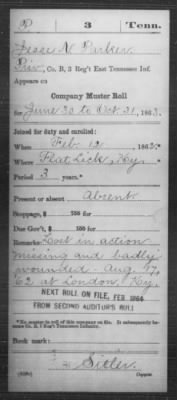 P 3 Tenn.
Jesse N. Parker
Priv., Co. B, 3 Reg't East Tennessee Inf.
Appears on
Company Muster Roll
for June 30 to Oct. 31, 1863.
Joined for duty and enrolled:
When Feb. 12, 1862.*
Where Flat Lick, Ky. *
Period 3 years.*
Present or absent Absent
Stoppage, $ 100 for
Due Gov't, $ 100 for
Remarks: Lost in action
missing and badly
wounded - Aug. 17,
62 at London, Ky.
NEXT ROLL ON FILE, FEB 1864
FROM SECOND AUDITOR'S ROLL
*No muster-in roll of this company on file. It subsequently became Co. B, 3 Reg't Tennessee Infantry.
Book mark:
Sitler
Copyist.